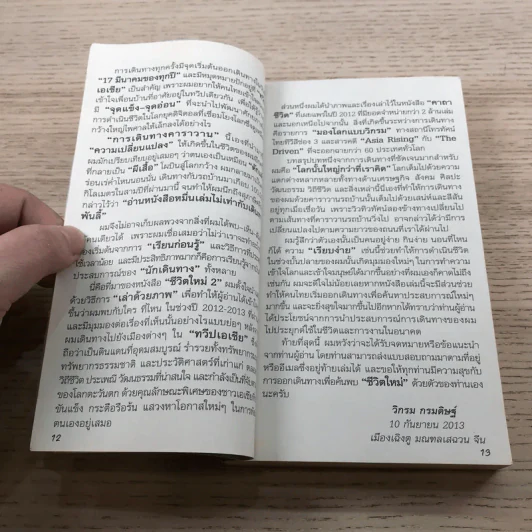 การเดินทางทุกครั้งมีจุดเริ่มต้นออกเดินทาง
"17 มีนาคมของทุกปี" และมีหมุดหมาย
เอเชีย" เป็นสำคัญ เพราะผมอยากให้คนไทยเข้าใจ
เข้าใจเพื่อนบ้านที่อาศัยอยู่ในทวีปเดียวกัน เพื่อให้รู้
มี "จุดแข็ง-จุดอ่อน" ที่จะนำไปพัฒนา
การดำเนินชีวิตในโลกยุคดิจิตอลที่เชื่อมโยงโลกซึ่ง
กว้างใหญ่ไพศาลให้เล็กลงได้อย่างไร
"การเดินทางคาราวาน" นี้เองที่
"ความเปลี่ยนแปลง" ให้เกิดขึ้นในชีวิต
ผมมักเปรียบเทียบอยู่เสมอว่า ตนเองเป็นเหมือน
ที่กลายเป็น "ผีเสื้อ" โผบินสู่โลกกว้าง
ร่อนเร่ค่ำไหนนอนนั่น เดินทางกับรถบ้านมาเกือบ 100,
กิโลเมตรในสามปีที่ผ่านมานี้ จนทำให้ผมนึกถึง
กล่าวไว้ว่า "อ่านหนังสือหมื่นเล่มไม่เท่ากับเดินทาง
พันลี้"
ผมจึงไม่อาจเก็บผลพวงจากสิ่งที่ผมได้พบ-เห็น-
คนเดียวได้ เพราะผมเชื่อเสมอว่าไม่ว่าเราจะทำ
ต้องเริ่มต้นจากการ "เรียนก่อนรู้" และวิธีการที่
ใช้เวลาน้อย และมีประสิทธิภาพมากก็คือการเรียนรู้จาก
ประสบการณ์ของ "นักเดินทาง" ทั้งหลาย
นี่คือที่มาของหนังสือ "ชีวิตใหม่ 2" ผมตั้งใจ
ด้วยวิธีการ "เล่าด้วยภาพ" เพื่อทำให้ผู้อ่านได้
ขึ้นว่าผมพบกับใคร ที่ไหน ในช่วงปี 2012-2013
และมีมุมมองต่อเรื่องที่เห็นนั้นอย่างไรแบบย่อๆ
ผมเดินทางไปยังเมืองต่างๆ ใน "ทวีปเอเชีย" ซึ่ง
ถือว่าเป็นดินแดนที่อุดมสมบูรณ์ ร่ำรวยทั้งทรัพยากร
ทรัพยากรธรรมชาติ และประวัติศาสตร์ที่เก่าแก่ ตลอด
วิถีชีวิต ประเพณี วัฒนธรรมที่น่าสนใจ และกำลังเป็น
ของโลกตะวันตก ด้วยคุณลักษณะพิเศษของชาวเอเชีย
ขันแข็ง กระตือรือร้น แสวงหาโอกาสใหม่ๆ ในการ
ตนเองอยู่เสมอ
12
ส่วนหนึ่งผมได้นำภาพและเรื่องเล่าไว้ในหนังสือ "คาถา
ชีวิต" ที่เผยแพร่ในปี 2012 ที่มียอดจำหน่ายกว่า 2 ล้านเล่ม
และนอกเหนือไปจากนั้น สิ่งที่เกิดขึ้นระหว่างการเดินทาง
คือรายการ "มองโลกแบบวิกรม" ทางสถานีโทรทัศน์
ไทยทีวีสีช่อง 3 และสารคดี "Asia Rising" กับ "The
Driven" ที่จะออกฉายกว่า 60 ประเทศทั่วโลก
บทสรุปบทหนึ่งจากการเดินทางที่ชัดเจนมากสำหรับ
ผมคือ "โลกนั้นใหญ่กว่าที่เราคิด" โลกเต็มไปด้วยความ
แตกต่างหลากหลายทั้งทางด้านเศรษฐกิจ สังคม ศิลปะ
วัฒนธรรม วิถีชีวิต และสิ่งเหล่านี้นี่เองที่ทำให้การเดินทาง
ของผมด้วยคาราวานรถบ้านนั้นเต็มไปด้วยเสน่ห์และสีสัน
อยู่ทุกเมื่อเชื่อวัน เพราะวิวทิวทัศน์สองข้างทางเปลี่ยนไป
ตามทิศทางที่คาราวานรถบ้านวิ่งไป อาจกล่าวได้ว่ามีการ
เปลี่ยนแปลงตามความยาวของถนนที่เราได้ผ่านไป
ผมรู้สึกว่าตัวเองนั้นเป็นคนอยู่ง่าย กินง่าย นอนที่ไหน
ก็ได้ ความ "เรียบง่าย" เช่นนี้ช่วยทำให้การดำเนินชีวิต
ในช่วงบั้นปลายของผมนั้นเกิดมุมมองใหม่ๆ ในการทำความ
เข้าใจโลกและเข้าใจมนุษย์ได้มากขึ้นอย่างที่ผมเองก็คาดไม่ถึง
เช่นกัน ผมจะดีใจไม่น้อยเลยหากหนังสือเล่มนี้จะมีส่วนช่วย
ทำให้คนไทยเริ่มออกเดินทางเพื่อค้นหาประสบการณ์ใหม่ๆ
มากขึ้น และจะยิ่งสุขใจมากขึ้นไปอีกหากได้ทราบว่าท่านผู้อ่าน
ได้ประโยชน์จากการนำประสบการณ์การเดินทางของผม
ไปประยุกต์ใช้ในชีวิตและการงานในอนาคต
ท้ายที่สุดนี้ ผมหวังว่าจะได้รับจดหมายหรือข้อแนะนำ
จากท่านผู้อ่าน โดยท่านสามารถส่งแบบสอบถามมาตามที่อยู่
หรืออีเมลซึ่งอยู่ท้ายเล่มได้ และขอให้ทุกท่านมีความสุขกับ
การออกเดินทางเพื่อค้นพบ "ชีวิตใหม่" ด้วยตัวของท่านเอง
นะครับ
วิกรม กรมดิษฐ์
10 กันยายน 2013
เมืองเฉิงตู มณฑลเสฉวน จีน
13